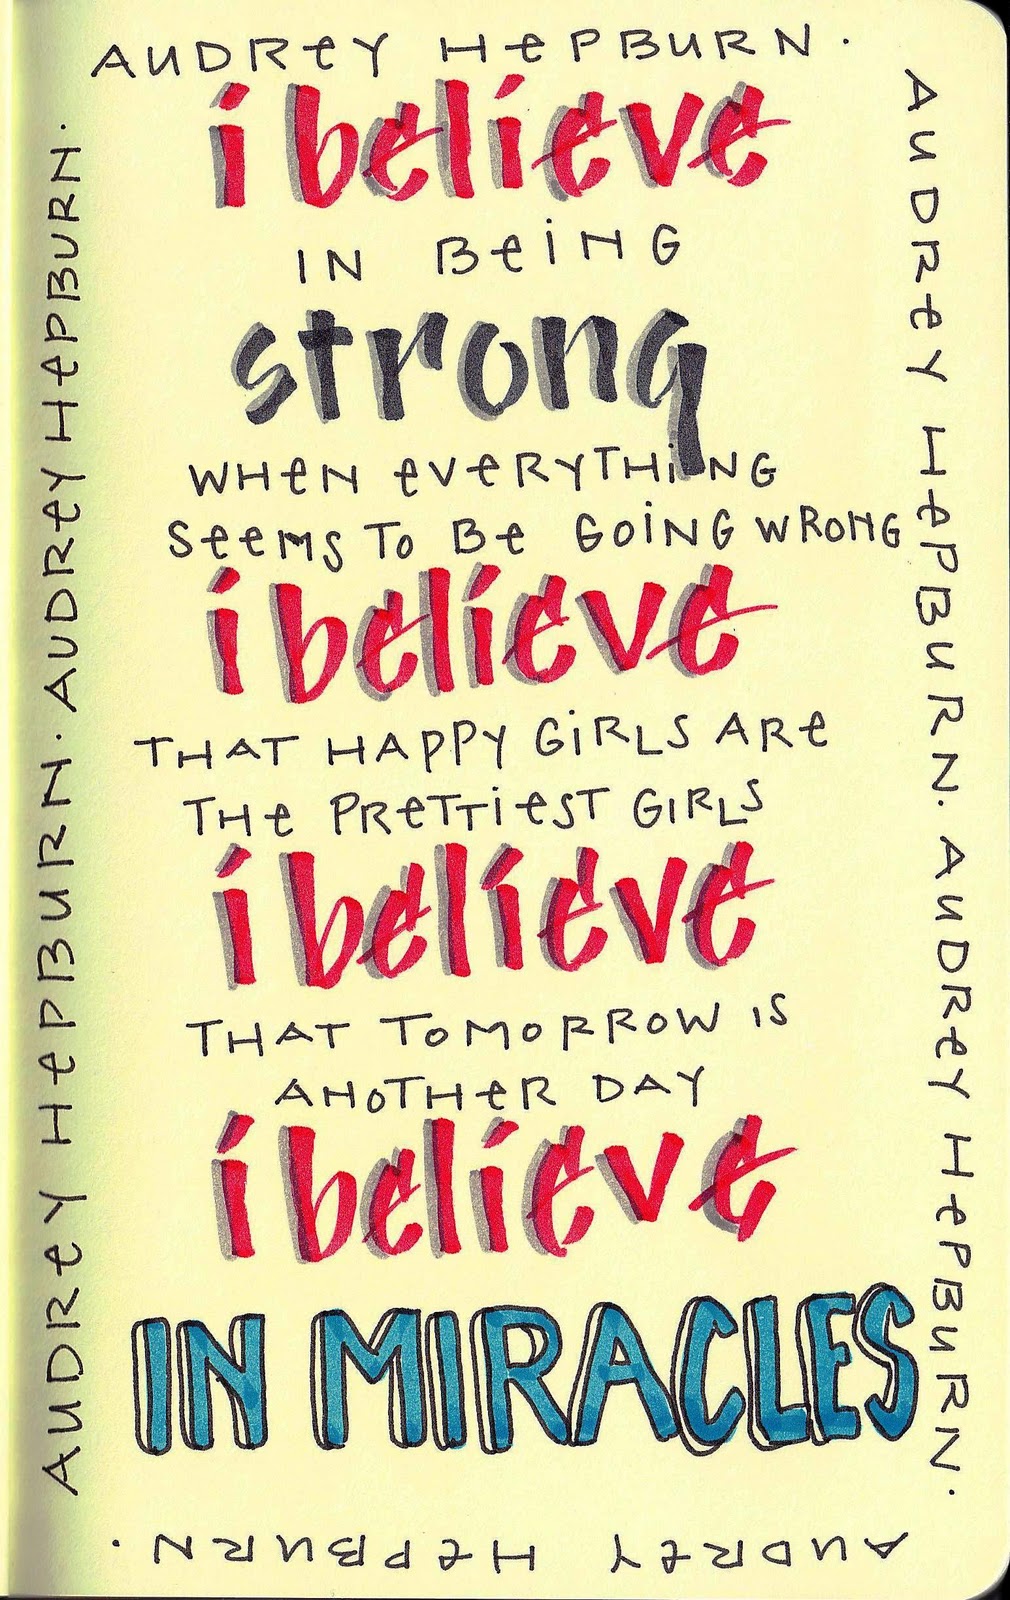 AUDREY HEPBURN.
i believe
IN BEING
strong
WHEN EVERYTHING
SEEMS TO BE GOING WRONG
i believe
THAT HAPPY GIRLS ARE
THE PRETTIEST GIRLS
i believe
THAT TOMORROW IS
ANOTHER DAY
i believe
IN MIRACLES
AUDREY HEPBURN. AUDREY HEPBURN.
AUDREY HEPBURN.
AUDREY HEPBURN. AUDREY HEPBURN.